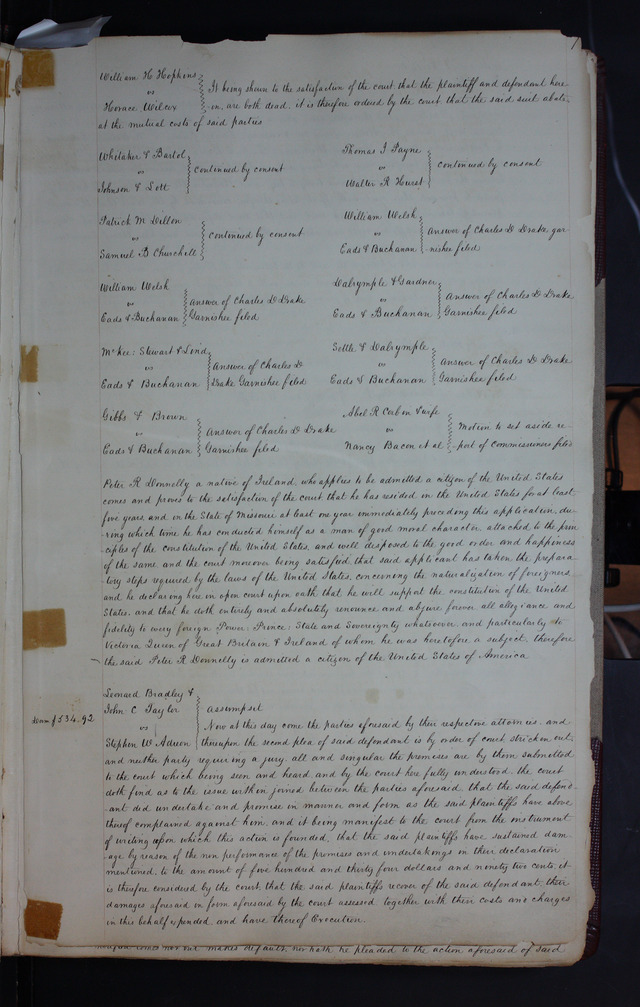 1
William H Hopkins
vs
Horace Wilcox
It being shown to the satisfaction of the court that the plaintiff and defendant here-
in, are both dead, it is therefore ordered by the court that the said suit abate,
at the mutual costs of said parties
Whitaker & Bartol
vs
Johnson & Lott
continued by consent
Thomas J Payne
vs
Walter R Hurst
continued by consent
Patrick M Dillon
vs
Samuel B Churchill
continued by consent
William Welsh
vs
Eads & Buchanan
Answer of Charles D Drake gar-
nishee filed
William Welsh
vs
Eads & Buchanan
Answer of Charles D Drake
Garnishee filed
Dalrymple & Gardner
vs
Eads & Buchanan
Answer of Charles D Drake
Garnishee filed
McKee: Stewart & Lind
vs
Eads & Buchanan
Answer of Charles D
Drake Garnishee filed
Settle & Dalrymple
vs
Eads & Buchanan
Answer of Charles D Drake
Garnishee filed
Gibbs & Brown
vs
Eads & Buchanan
Answer of Charles D Drake
Garnishee filed
Abel R Corbin & wife
vs
Nancy Bacon et al
Motion to set aside re-
port of Commissioners filed
Peter R Donnelly a native of Ireland, who applies to be admitted a citizen of the United States
comes and proves to the satisfaction of the court that he has resided in the United States for at least
five years, and in the State of Missouri at least one year immediately preceding this application, du-
ring which time he has conducted himself as a man of good moral character, attached to the prin
ciples of the constitution of the United States, and well disposed to the good order and happiness
of the same and the court moreover being satisfied that said applicant has taken the prepara-
tory steps required by the laws of the United States, concerning the naturalization of foreigners
and he declaring here in open court upon oath that he will support the constitution of the United
States, and that he doth entirely and absolutely renounce and abjure forever all allegiance and
fidelity to every foreign Power: Prince: State and Sovereignty whatsoever, and particularly to
Victoria Queen of Great Britain & Ireland of whom he was heretofore a subject, therefore
the said Peter R Donnelly is admitted a citizen of the United States of America
Leonard Bradley &
John C Taylor
vs
Stephen W Adreon
assumpsit
Dam $534.92
Now at this day come the parties aforesaid by their respective attornies, and
thereupon the second plea of said defendant is by order of court stricken out,
and neither party requiring a jury, all and singular the premises are by them submitted
to the court, which being seen and heard and by the court here fully understood, the court
doth find as to the issue within joined between the parties aforesaid, that the said defend-
ant did undertake and promise in manner and form as the said plaintiffs have above
thereof complained against him, and it being manifest to the court from the instrument
of writing upon which this action is founded, that the said plaintiffs have sustained dam-
age by reason of the non performance of the promises and undertakings in their declaration
mentioned, to the amount of five hundred and thirty four dollars and ninety two cents, it
is therefore considered by the court, that the said plaintiffs recover of the said defendant, their
damages aforesaid in form aforesaid by the court assessed, together with their costs and charges
in this behalf expended, and have thereof Execution.
comes not but makes default, nor hath he pleaded to the action aforesaid of said